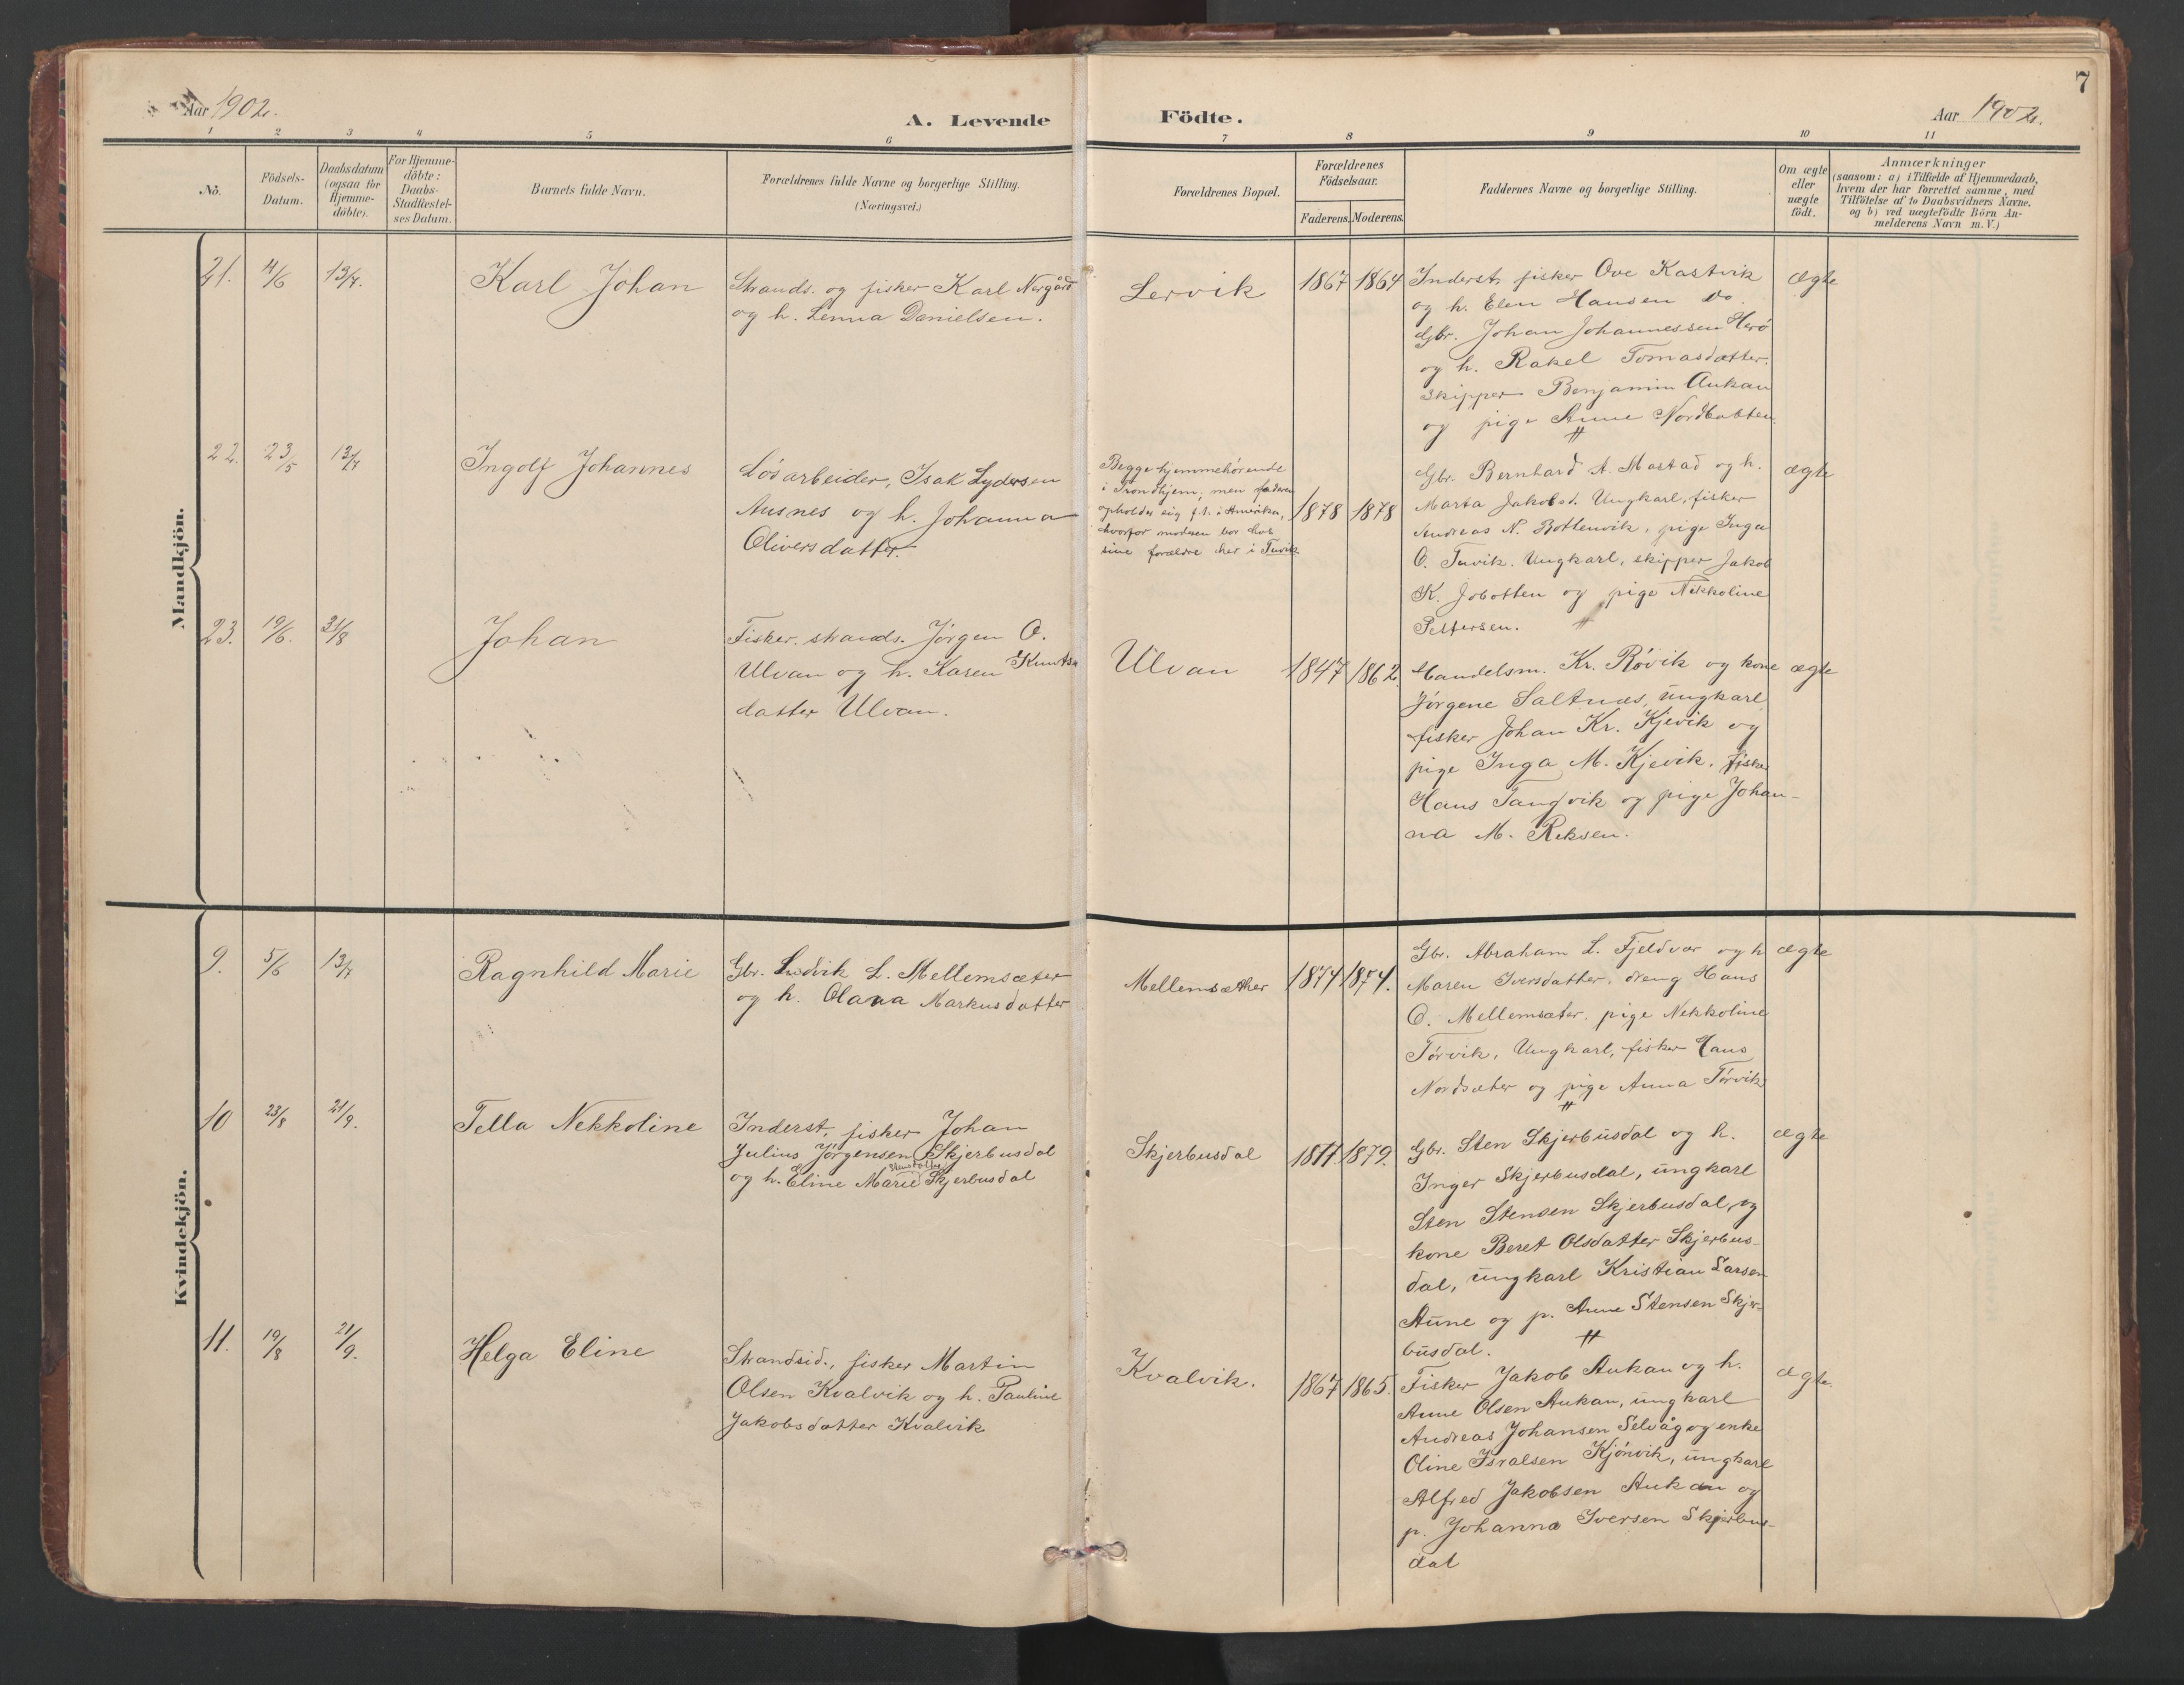 7
Aar 1902.
A. Levende Födte.
Aar 1902.
1 2 3 4 5 6 7 8 9 10 11
No.
Födsels-
Datum.
Daabsdatum
(ogsaa for
Hjemme-
döbte).
For Hjemme-
döbte:
Daabs-
Stadfæstel-
ses Datum.
Barnets fulde Navn.
Forældrenes fulde Navne og borgerlige Stilling.
(Næringsvei.)
Forældrenes Bopæl.
Forældrenes
Födselsaar.
Faderens. Moderens.
Faddernes Navne og borgerlige Stilling.
Om ægte
eller
uægte
födt.
Anmærkninger
(saasom: a) i Tilfælde af Hjemmedaab,
hvem der har forrettet samme, med
Tilföielse af to Daabsvidners Navne,
og b) ved uægtefödte Börn An-
melderens Navn m. V.)
Mandkjön.
21.
4/6
13/7.
Karl Johan
Strands. og fisker Karl Nergård
og h. Lenna Danielsen.
Lervik
1867
1864
Inderst, fisker Ove Kastvik
og h. Elen Hansen do.
Gbr. Johan Johannessen Herö
og h. Rakel Tomasdatter.
skipper Benjamin Aukan
og pige Anne Nordbotten
ægte
22.
23/5
13/7
Ingolf Johannes
Lösarbeider, Isak Lydersen
Ausnes og h. Johanna
Oliversdatter.
Begge hjemmehörende
i Trondhjem, men faderen
opholder sig f.t. i Amerika,
hvorfor moderen bor hos
sine forældre her i Tuvik
1878
1878
Gbr. Bernhard A. Mastad og h.
Marta Jakobsd. Ungkarl, fisker
Andreas N. Bottenvik, pige Inga
O. Tuvik. Ungkarl, skipper Jakob
K. Jobotten og pige Nikkoline
Pettersen.
ægte
23.
19/6.
31/8
Johan
Fisker. strands. Jörgen O.
Ulvan og h. Karen Knuts-
datter Ulvan.
Ulvan
1847
1862.
Handelsm. Kr. Rövik og kone
Jörgene Saltnæs, ungkarl
fisker Johan Kr. Kjevik og
pige Inga M. Kjevik, fisker
Hans Tangvik og pige Johan-
na M. Reksen.
ægte
Kvindekjön.
9.
5/6
13/7
Ragnhild Marie
Gbr. Ludvik L. Mellemsæter
og h. Olava Markusdatter
Mellemsæther
1874
1874.
Gbr. Abraham L. Fjeldvær og h
Maren Iversdatter. dreng Hans
O. Mellemsæter. pige Nekkoline
Törvik, Ungkarl, fisker Hans
Nordsæter og pige Anna Törvik
ægte
10
23/8
21/9.
Tella Nekkoline
Inderst, fisker Johan
Julius Jörgensen Skjerbusdal
og h. Eline Marie Skjerbusdal
Skjerbusdal
1879.
Gbr. Sten Skjerbusdal og h.
Inger Skjerbusdal, ungkarl
Sten Stensen Skjerbusdal, og
kone Beret Olsdatter Skjerbus-
dal, ungkarl Kristian Larsen
Aune og p. Anne Stensen Skjer-
busdal.
ægte
11.
19/8
21/9.
Helga Eline
Strandsid., fisker Martin
Olsen Kvalvik og h. Pauline
Jakobsdatter Kvalvik
Kvalvik.
1867
1865.
Fisker Jakob Aukan og h.
Anne Olsen Aukan, ungkarl
Andreas Johansen Selvåg og enke
Oline Isralsen Kjönvik, ungkarl
Alfred Jakobsen Aukan og
p. Johanna Iversen Skjerbus-
dal
ægte.